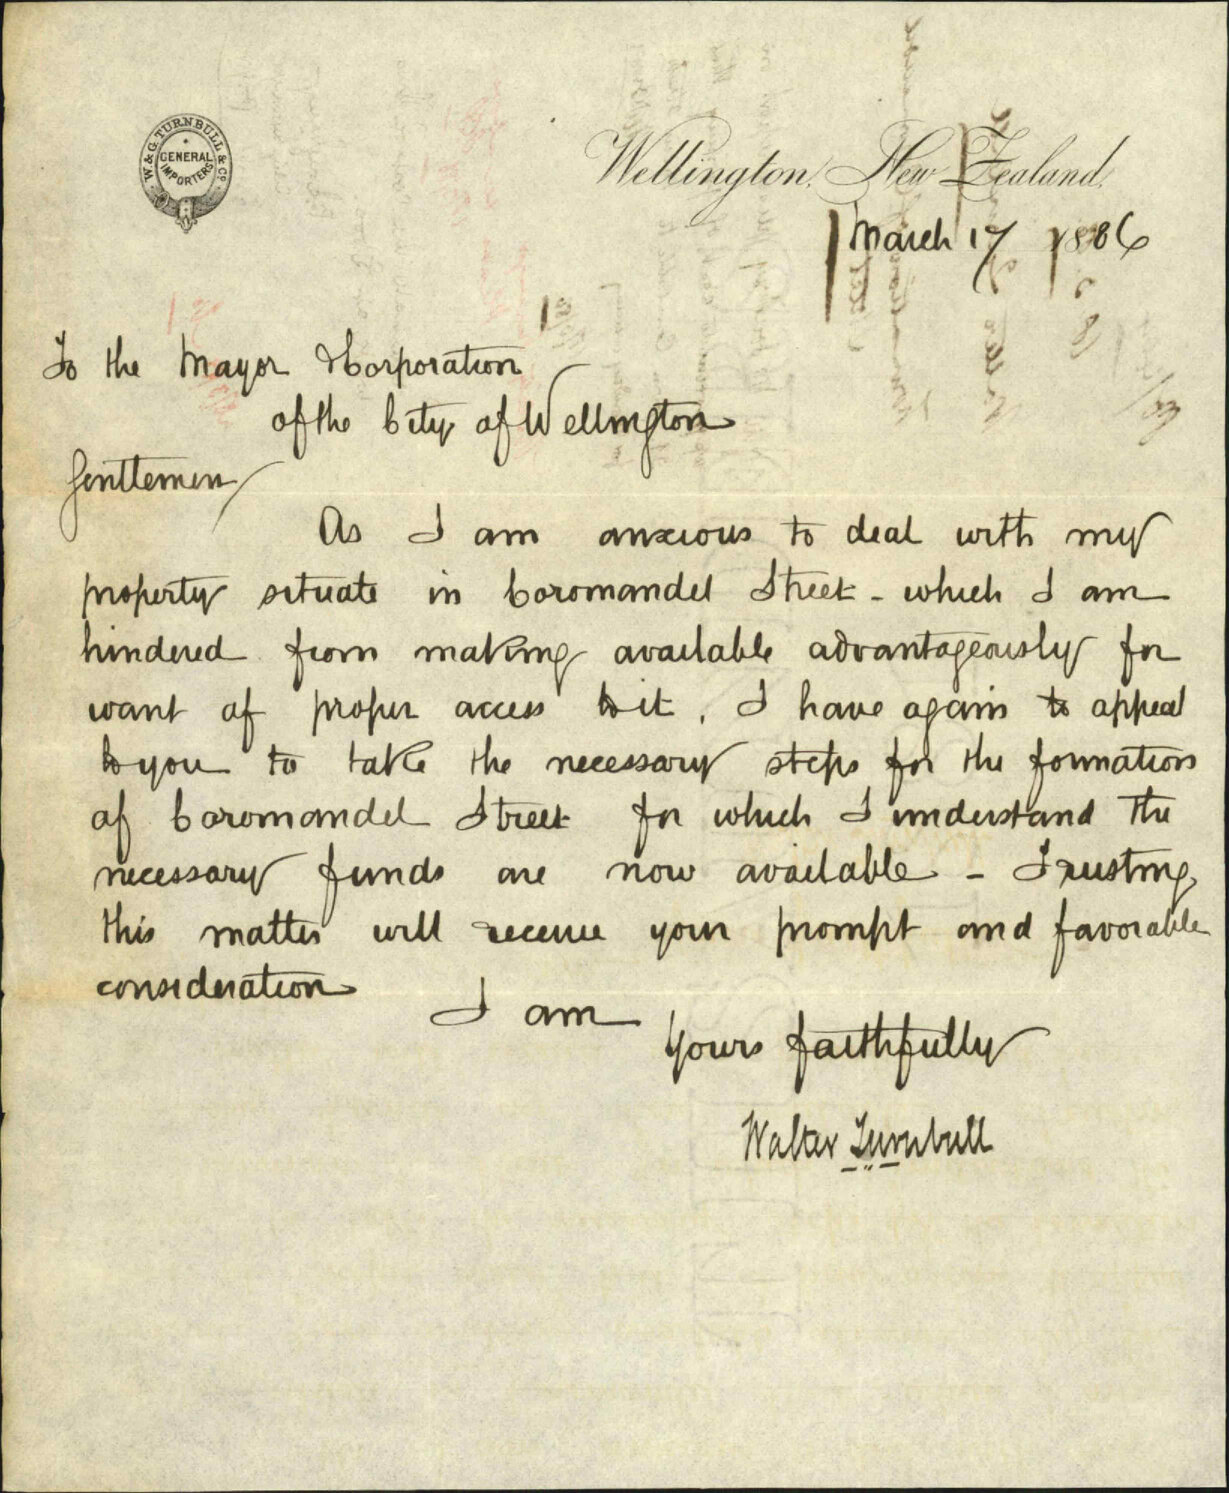 W. & G. TURNBULL & Co
GENERAL
IMPORTERS
Wellington, New Zealand,
March 17 1886
To the Mayor & Corporation
of the City of Wellington
Gentlemen
As I am anxious to deal with my
property situate in Coromandel Street - which I am
hindered from making available advantageously for
want of proper access to it, I have again to appeal
to you to take the necessary steps for the formation
of Coromandel Street for which I understand the
necessary funds are now available - Trusting
this matter will receive your prompt and favorable
consideration
I am
Yours faithfully
Walter Turnbull